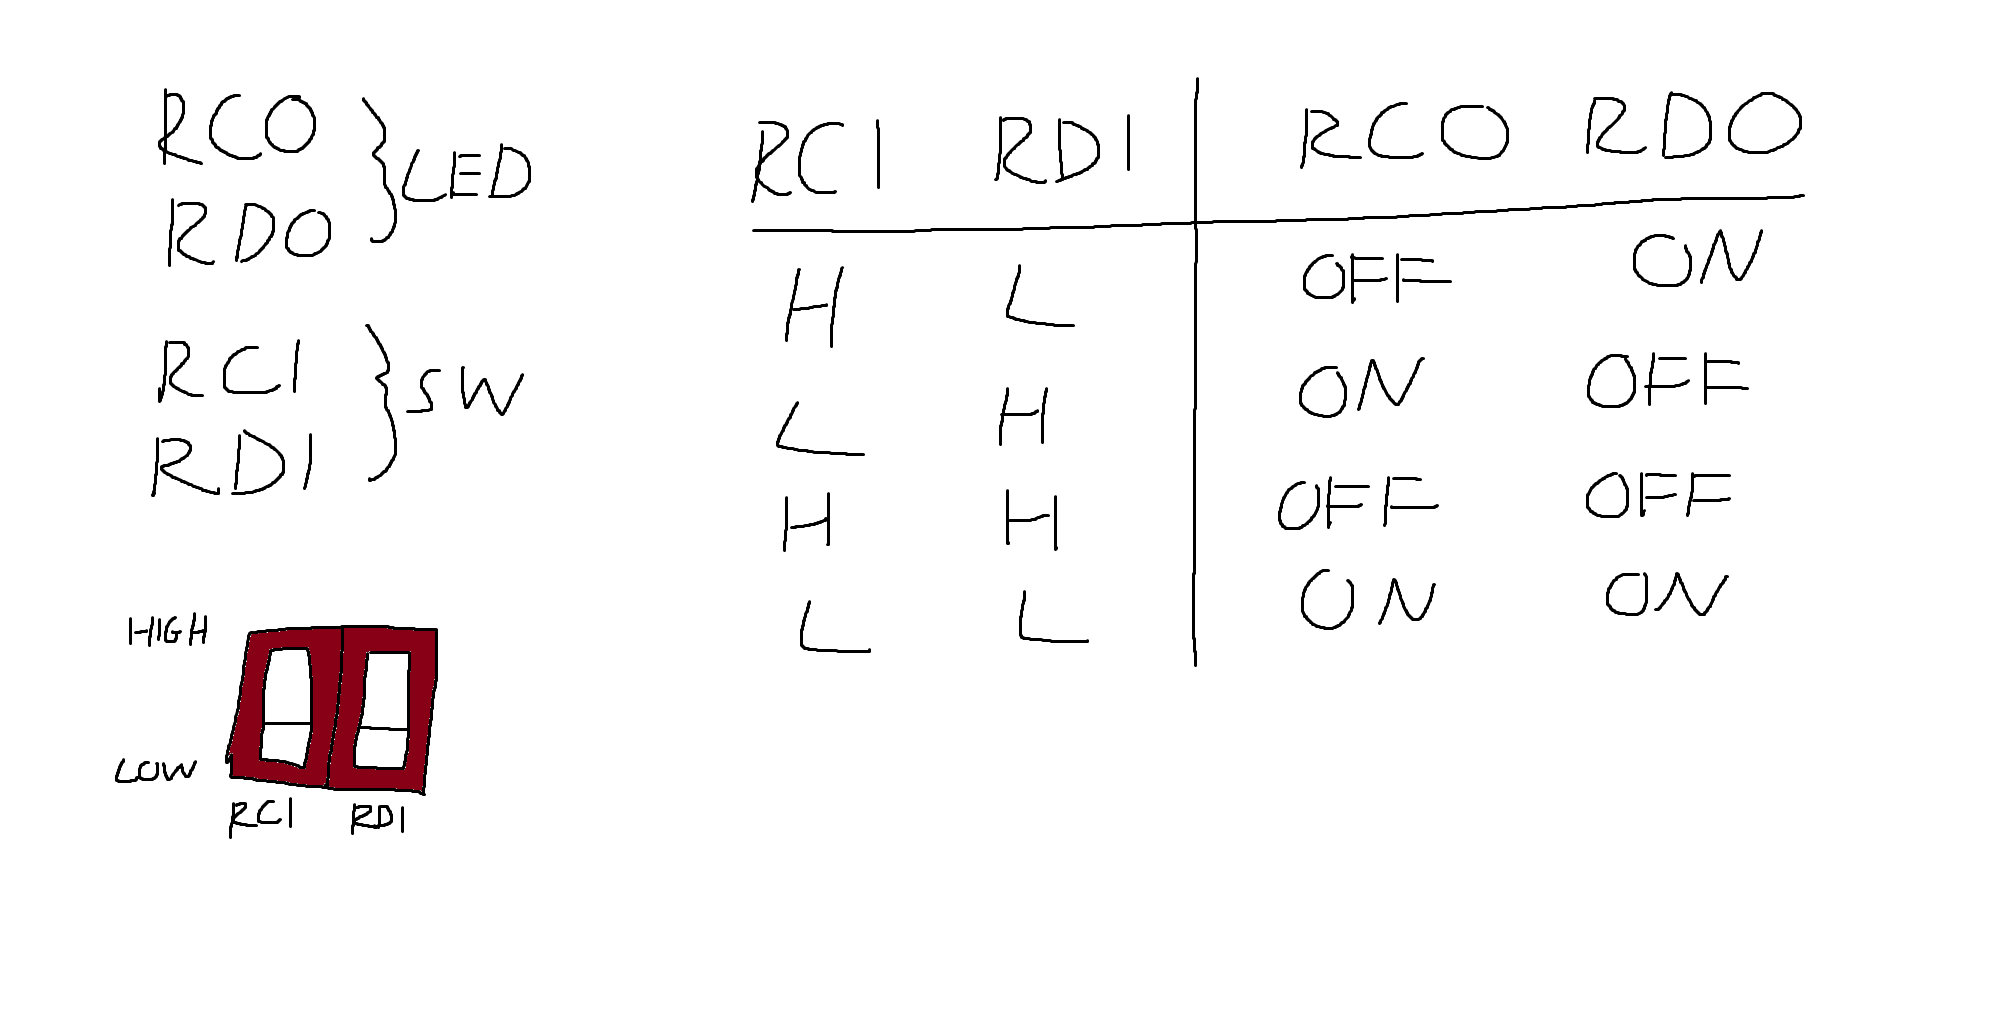 RCO
RDO
} LED
RCI
RDI
} SW
HIGH
LOW
RCI RDI
RCI RDI RCO RDO
H L OFF ON
L H ON OFF
H H OFF OFF
L L ON ON